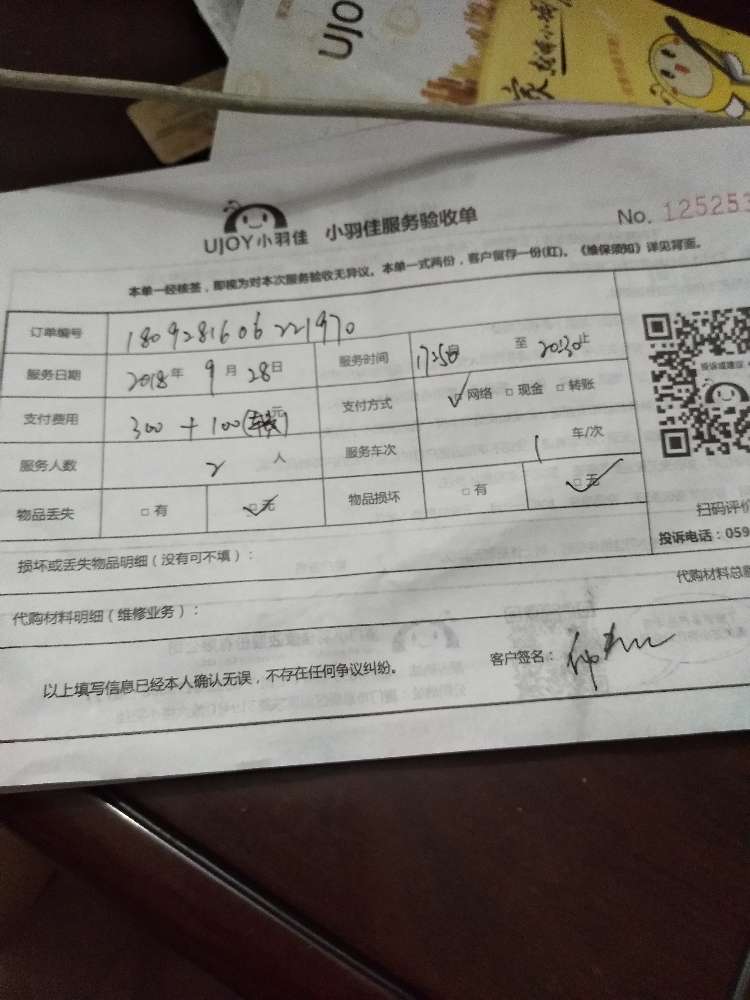 UJO
UJOY小羽佳 小羽佳服务验收单 No. 125253
本单一经核签，即视为对本次服务验收无异议。本单一式两份，客户留存一份(红)。《维保须知》详见背面。
订单编号 1809281606221970
服务日期 2018年 9月 28日 服务时间 17:50 至 20:30止
支付费用 300 + 100 元 支付方式 ✓网络 □现金 □转账
服务人数 2 人 服务车次 1 车/次
物品丢失 □有 ✓无 物品损坏 □有 ✓无
投诉或建议
扫码评价
投诉电话：059
损坏或丢失物品明细（没有可不填）：
代购材料总
代购材料明细（维修业务）：
以上填写信息已经本人确认无误，不存在任何争议纠纷。 客户签名：